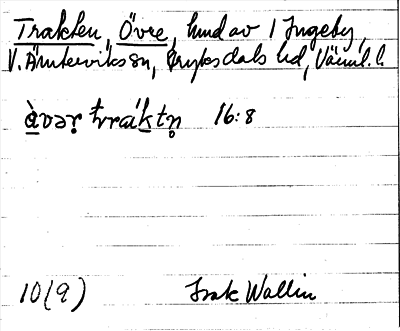 Trakten, Övre, hmd av 1 Ingeby,
V. Ämterviks sn, Fryksdals hd, Värml. l.
16:8
10(9) Isak Wallin